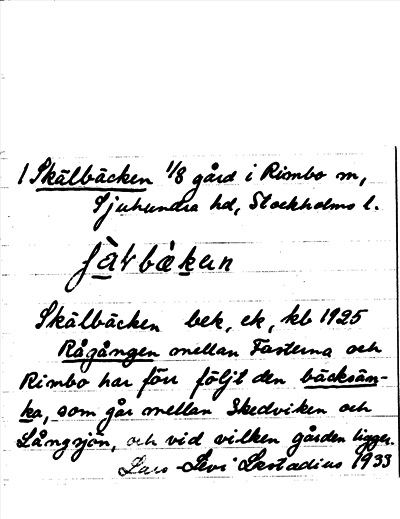 1 Skälbäcken 1/8 gård i Rimbo sn,
Sjuhundra hd, Stockholms l.
Skälbäcken bek, ek, kb 1925
Rågången mellan Fasterna och
Rimbo har förr följt den bäcksän-
ka, som går mellan Skedviken och
Långsjön, och vid vilken gården ligger.
Lars-Levi Læstadius 1933